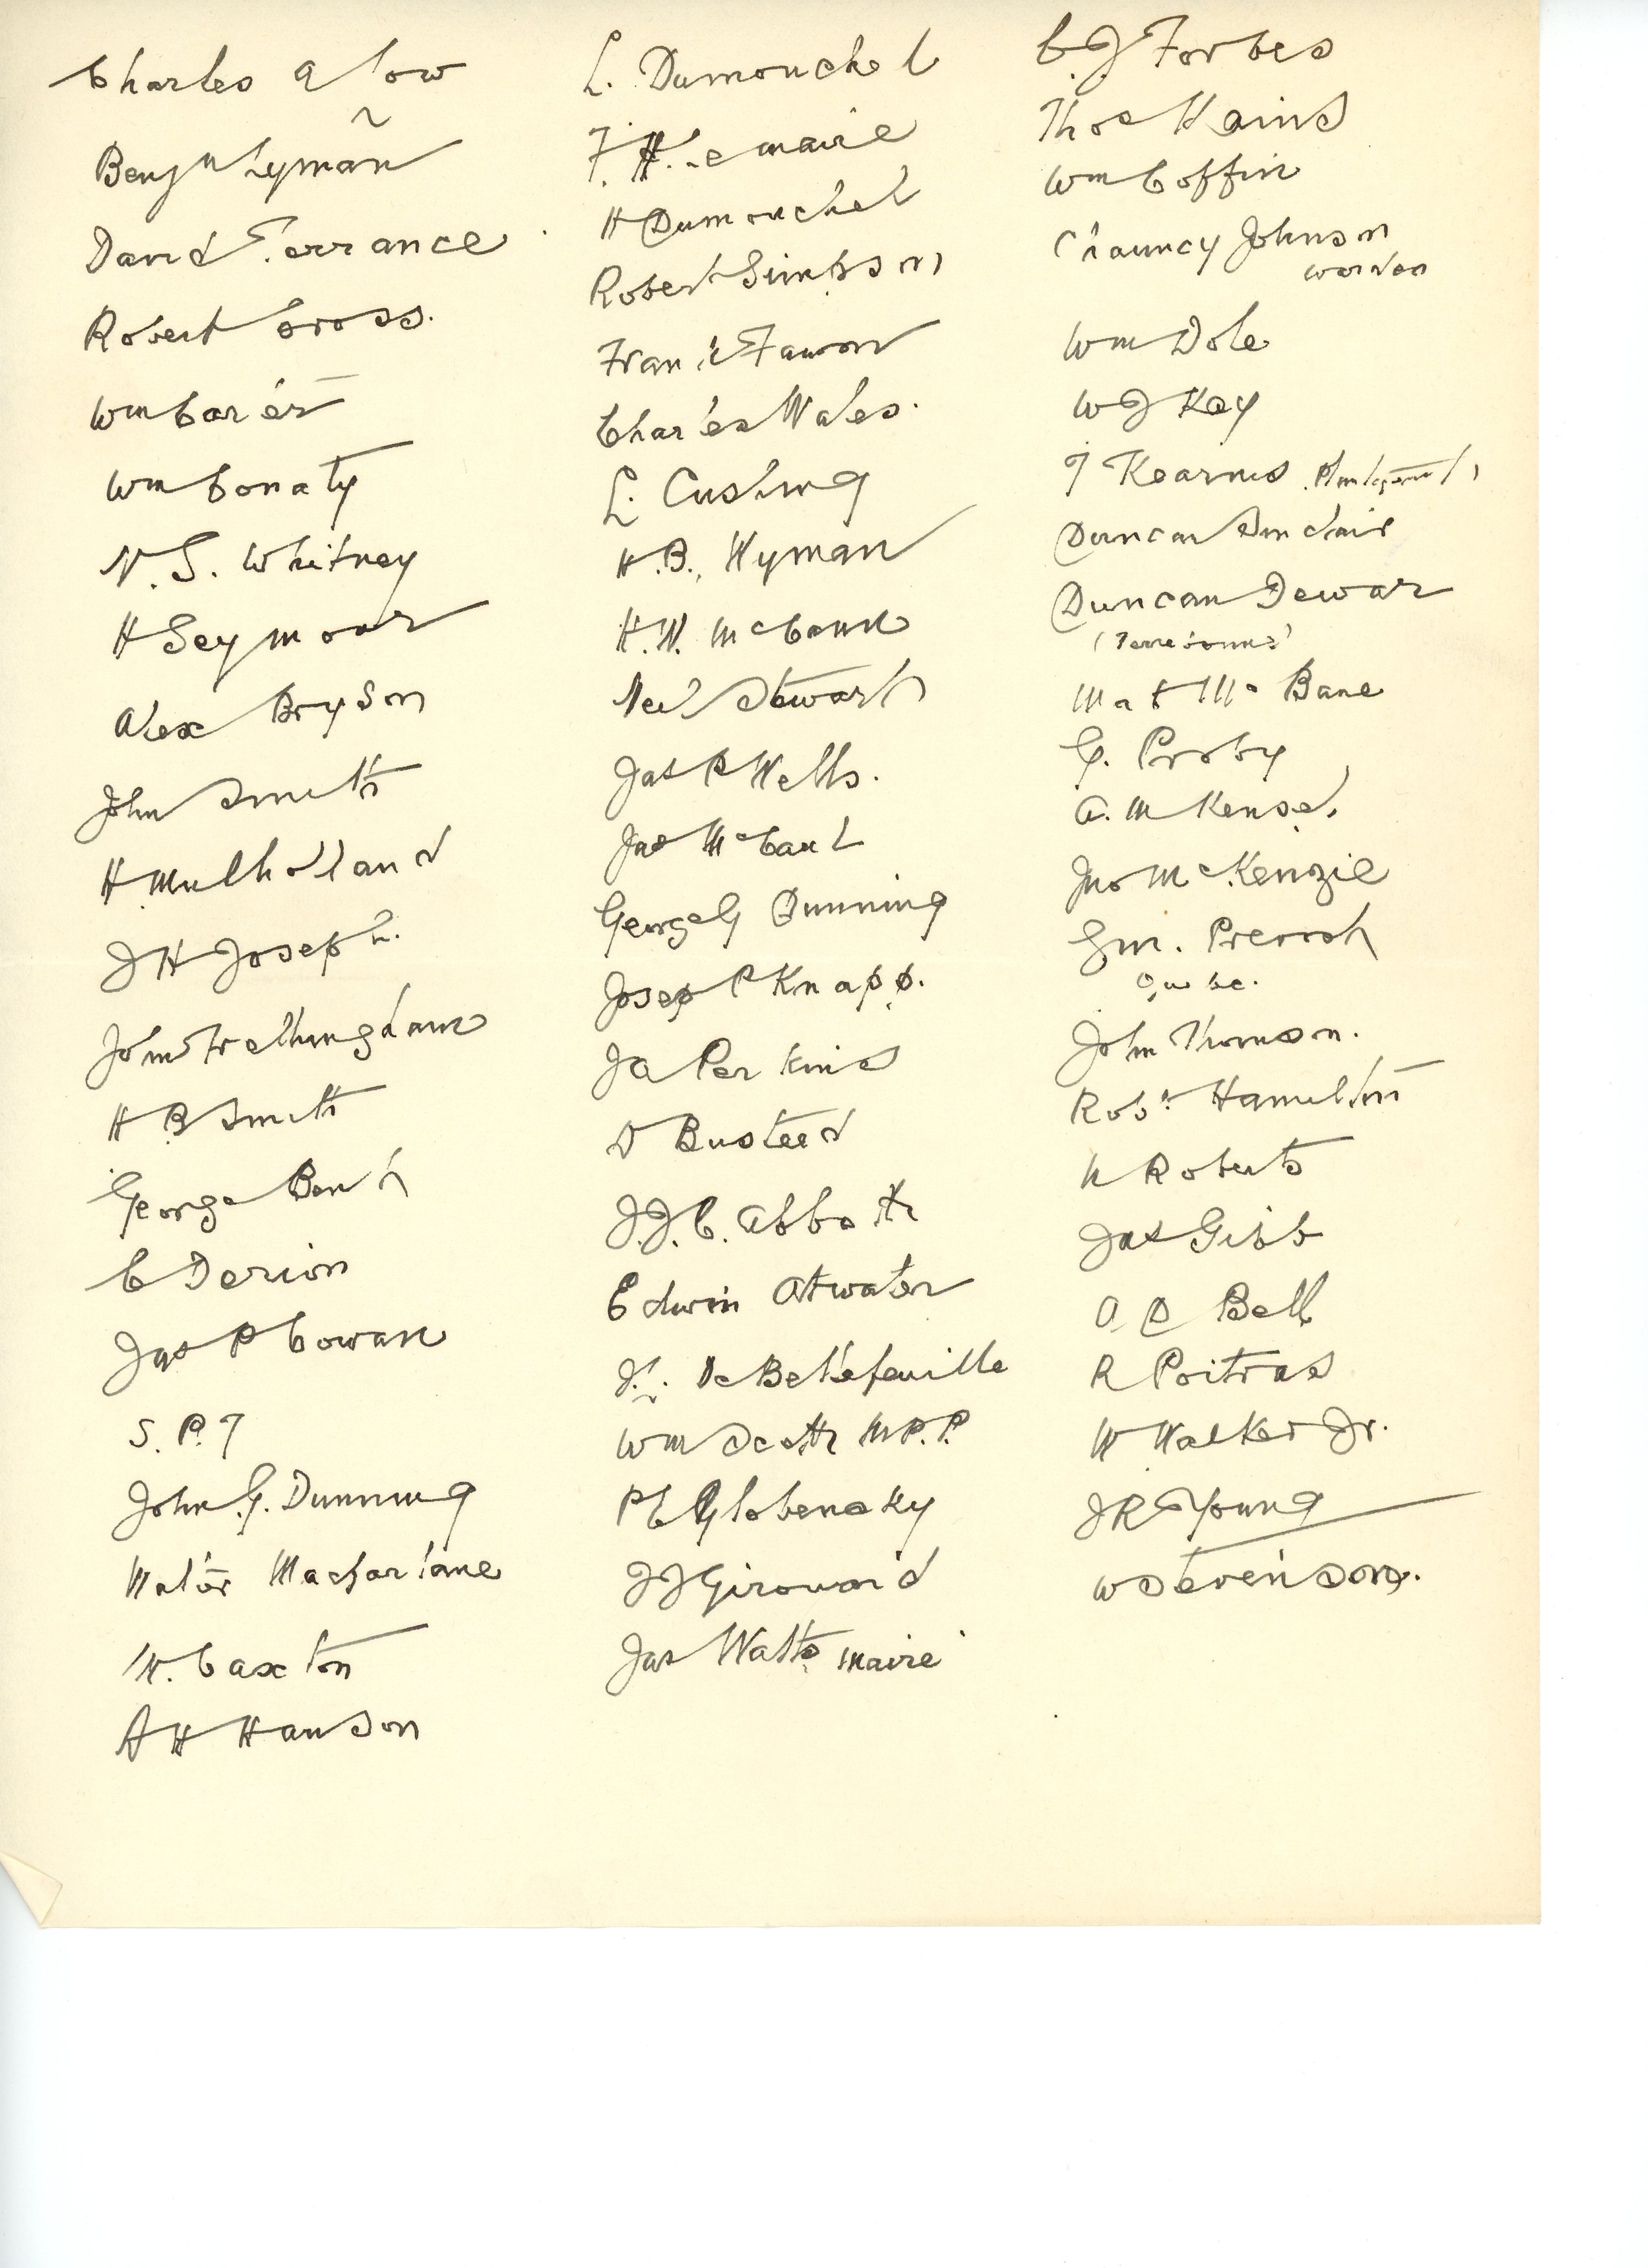 Charles A Low
Benj n Lyman
David Torrance
Robert Cross.
Wm Carter
Wm Conaty
N. S. Whitney
H Seymour
Alex Bryson
John Smith
H Mulholland
J H Joseph.
John Frothingham
H B Smith
George
C Dorion
Jas P Cowan
S. P. T
John G. Dunning
Walter Macfarlane
W. Caxton
A H Hanson
L. Dumouchel
F. H. Lemaire
H Dumouchel
Robert Simpson
Charles Wales.
L. Cushing
H. B. Wyman
H. W. McCann
Neil Stewart
Jas P Wells.
Jas McCaul
George G Dunning
Joseph P Knapp.
J A Perkins
D Busteed
J. J. C. Abbott
Edwin Atwater
J. L. De Bellefeuille
Wm Scott M P. P.
P E Globensky
J J Girouard
Jas Watts Maire
C. J Forbes
Thos Kains
Wm Coffin
Chauncy Johnson
Warden
Wm Dole
W J Kay
T Kearns
Duncan Sinclair
Duncan Dewar
(Terrebonne)
Mat Mc Bane
G. Proby
Jno McKenzie
Quebec.
John Thomson.
Robt. Hamilton
Roberts
Jas Gibb
Bell
R Poitras
W Walker Jr.
J R Young
W Stevenson.